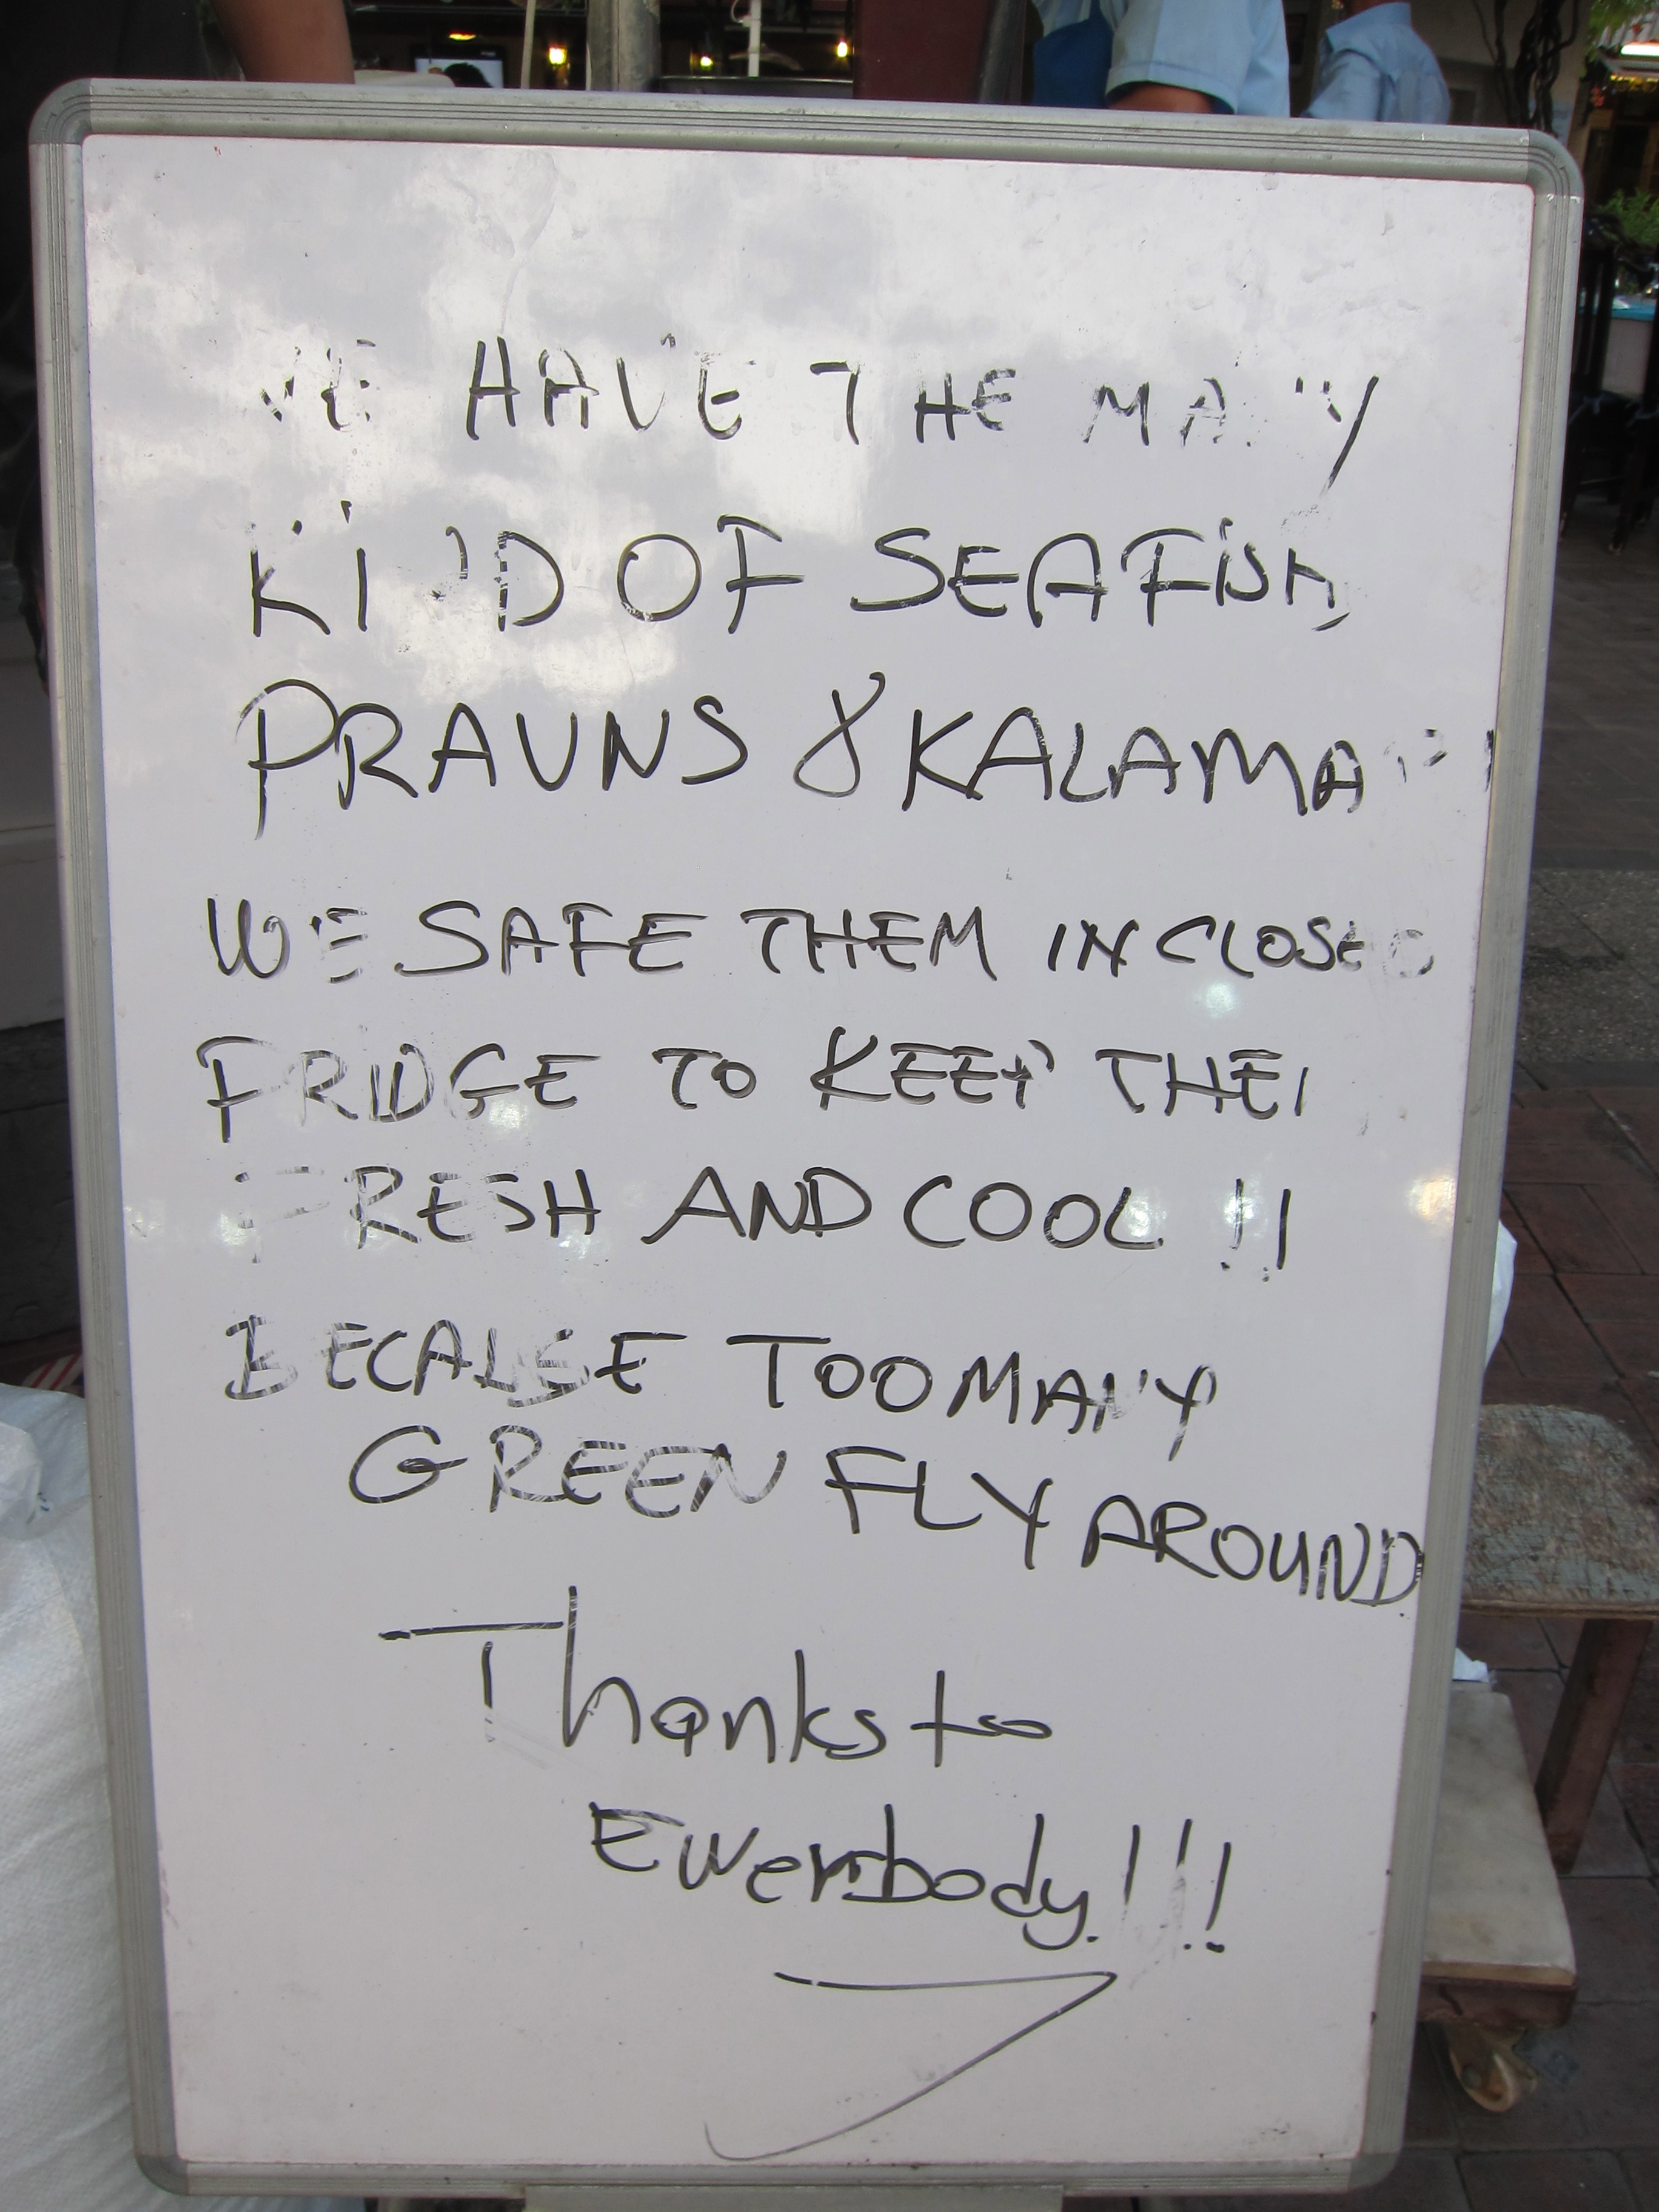 WE HAVE THE MANY
KIND OF SEAFISH,
PRAUNS & KALAMARI
WE SAFE THEM IN CLOSED
FRIDGE TO KEEP THEM
FRESH AND COOL !!
BECAUSE TOO MANY
GREEN FLY AROUND
Thanks to
Ewerbody!!!